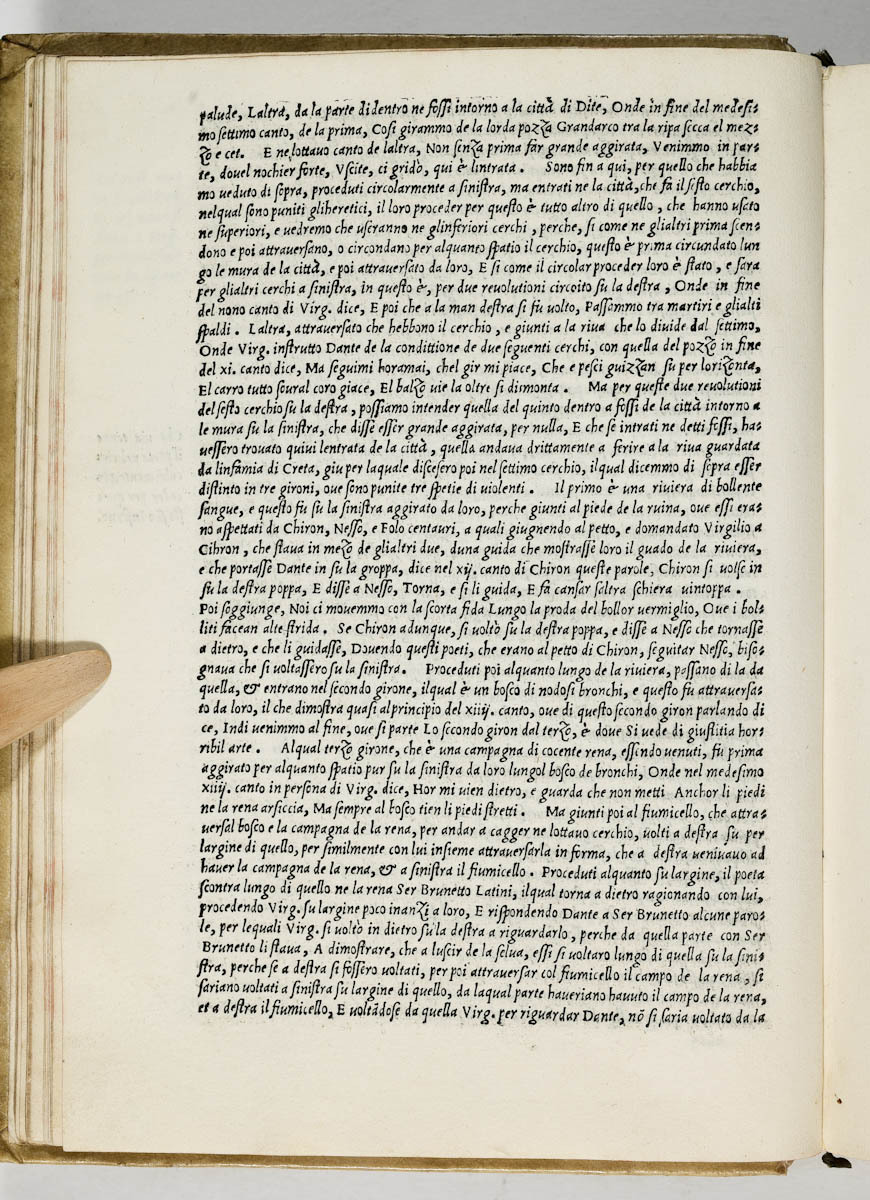 palude, Laltra, da la parte di dentro ne fossi intorno a la città di Dite, Onde in fine del medesi-
mo settimo canto, de la prima, Cosi girammo de la lorda pozza Grandarco tra la ripa secca el mez-
zo e cet. E ne lottauo canto de laltra, Non senza prima far grande aggirata, Venimmo in par-
te, douel nochier forte, Vscite, ci gridò, qui è lintrata. Sono fin a qui, per quello che habbia
mo ueduto di sopra, proceduti circolarmente a sinistra, ma entrati ne la città, che fa il sesto cerchio,
nelqual sono puniti gliheretici, il loro proceder per questo è tutto altro di quello, che hanno usato
ne superiori, e uedremo che useranno ne glinferiori cerchi, perche, si come ne glialtri prima scen-
dono e poi attrauersano, o circondano per alquanto spatio il cerchio, questo è prima circundato lun
go le mura de la città, e poi attrauersato da loro, E si come il circolar proceder loro è stato, e sara
per glialtri cerchi a sinistra, in questo è, per due reuolutioni circoito su la destra, Onde in fine
del nono canto di Virg. dice, E poi che a la man destra si fu uolto, Passammo tra martiri e glialti
spaldi. Laltra, attrauersato che hebbono il cerchio, e giunti a la riua che lo diuide dal settimo,
Onde Virg. instrutto Dante de la condittione de due seguenti cerchi, con quella del pozzo in fine
del xi. canto dice, Ma seguimi horamai, chel gir mi piace, Che e pesci guizzan su per lorizonta,
El carro tutto soural coro giace, El balzo uie la oltre si dirmonta. Ma per queste due reuolutioni
del sesto cerchio su la destra, possiamo intender quella del quinto dentro a fossi de la città intorno a
le mura su la sinistra, che disse esser grande aggirata, per nulla, E che se intrati ne detti fossi, ha-
uessero trouato quiui lentrata de la città, quella andaua drittamente a ferire a la riua guardata
da linfamia di Creta, giu per laquale discesero poi nel settimo cerchio, ilqual dicemmo di sopra esser
distinto in tre gironi, oue sono punite tre spetie di uiolenti. Il primo è una riuiera di bollente
sangue, e questo fu su la sinistra aggirato da loro, perche giunti al piede de la ruina, oue essi era-
no aspettati da Chiron, Nesso, e Folo centauri, a quali giugnendo al petto, e domandato Virgilio a
Cihron, che staua in mezo de glialtri due, duna guida che mostrasse loro il guado de la riuiera,
e che portasse Dante in su la groppa, dice nel xij. canto di Chiron queste parole, Chiron si uolse in
su la destra poppa, E disse a Nesso, Torna, e si li guida, E fa cansar saltra schiera uintoppa.
Poi soggiunge, Noi ci mouemmo con la scorta fida Lungo la proda del bollor uermiglio, Oue i bol-
liti facean alte strida. Se Chiron adunque, si uoltò su la destra poppa, e disse a Nesso che tornasse
a dietro, e che li guidasse, Douendo questi poeti, che erano al petto di Chiron, seguitar Nesso, biso-
gnaua che si uoltassero su la sinistra. Proceduti poi alquanto lungo de la riuiera, passano di la da
quella, & entrano nel secondo girone, ilqual è un bosco di nodosi bronchi, e questo fu attrauersa-
to da loro, il che dimostra quasi al principio del xiiij. canto, oue di questo secondo giron parlando di
ce, Indi uenimmo al fine, oue si parte Lo secondo giron dal terzo, è doue Si uede di giustitia hor-
ribil arte. Alqual terzo girone, che è una campagna di cocente rena, essendo uenuti, fu prima
aggirato per alquanto spatio pur su la sinistra da loro lungol bosco de bronchi, Onde nel medesimo
xiiij. canto in persona di Virg. dice, Hor mi uien dietro, e guarda che non metti Anchor li piedi
ne la rena arsiccia, Ma sempre al bosco tien li piedi stretti. Ma giunti poi al fiumicello, che attra-
uersal bosco e la campagna de la rena, per andar a cagger ne lottauo cerchio, uolti a destra su per
largine di quello, per similmente con lui insieme attrauersarla in forma, che a destra ueniuauo ad
hauer la campagna de la rena, & a sinistra il fiumicello. Proceduti alquanto su largine, il poeta
scontra lungo di quello ne la rena Ser Brunetto Latini, ilqual torna a dietro ragionando con lui,
procedendo Virg. su largine poco inanzi a loro, E rispondendo Dante a Ser Brunetto alcune paro-
le, per lequali Virg. si uoltò in dietro su la destra a riguardarlo, perche da quella parte con Ser
Brunetto li staua, A dimostrare, che a luscir de la selua, essi si uoltaro lungo di quella su la sini-
stra, perche se a destra si fossero uoltati, per poi attrauersar col fiumicello il campo de la rena, si
sariano uoltati a sinistra su largine di quello, da laqual parte haueriano hauuto il campo de la rena,
et a destra il fiumicello, E uoltãdose da quella Virg. per riguardar Dante, nõ si saria uoltato da la